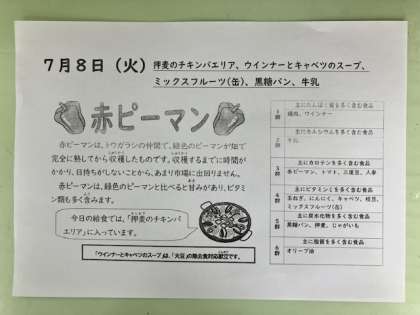 7月8日（火）押麦のチキンパエリア、ウインナーとキャベツのスープ、
ミックスフルーツ(缶)、黒糖パン、牛乳
赤ピーマン
赤ピーマンは、トウガラシの仲間で、緑色のピーマンが畑で
完全に熟してから収穫したものです。収穫するまでに時間が
かかり、日持ちがしないことから、あまり市場に出回りません。
赤ピーマンは、緑色のピーマンと比べると甘みがあり、ビタミ
ン類も多く含みます。
今日の給食では、「押麦のチキンパ
エリア」に入っています。
「ウインナーとキャベツのスープ」は、「大豆」の除去食対応献立です。
1群
主にたんぱく質を多く含む食品
鶏肉、ウインナー
2群
主にカルシウムを多く含む食品
牛乳
3群
主にカロテンを多く含む食品
赤ピーマン、トマト、三度豆、人参
4群
主にビタミンCを多く含む食品
玉ねぎ、にんにく、キャベツ、枝豆、
ミックスフルーツ(缶)
5群
主に炭水化物を多く含む食品
黒糖パン、押麦、じゃがいも
6群
主に脂質を多く含む食品
オリーブ油